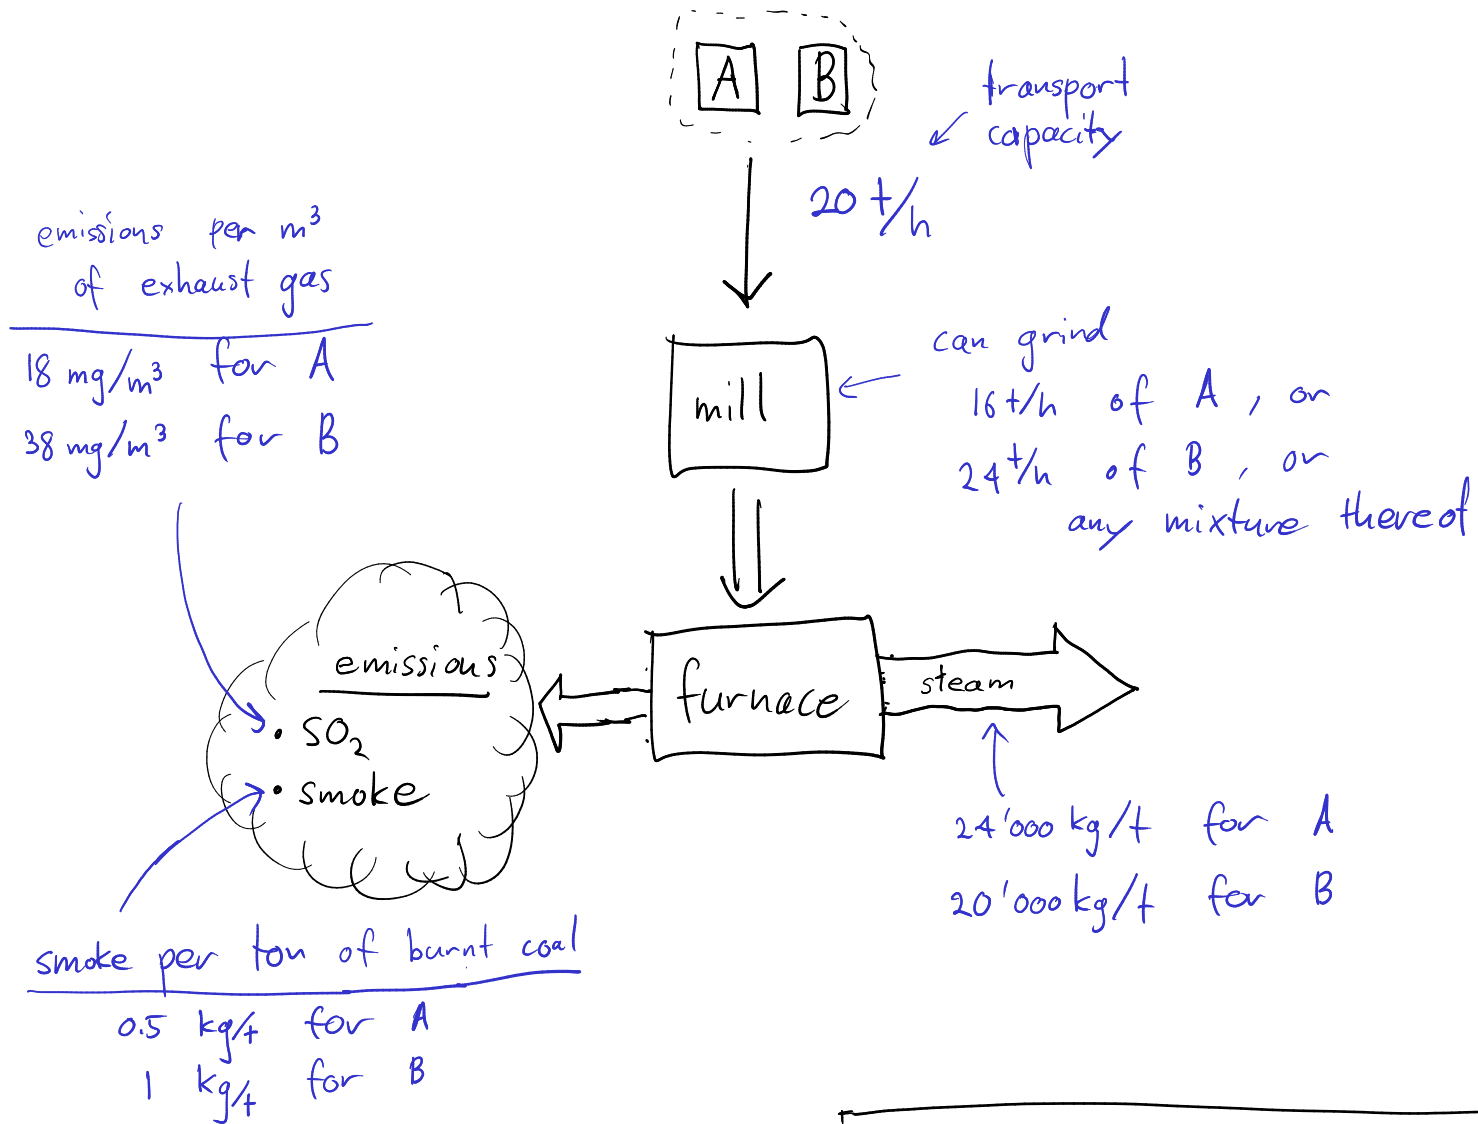 A B
transport
capacity
20 t/h
emissions per m³
of exhaust gas
18 mg/m³ for A
38 mg/m³ for B
mill
can grind
16 t/h of A, or
24 t/h of B, or
any mixture thereof
emissions
• SO₂
• smoke
furnace
steam
24'000 kg/t for A
20'000 kg/t for B
smoke per ton of burnt coal
0.5 kg/t for A
1 kg/t for B